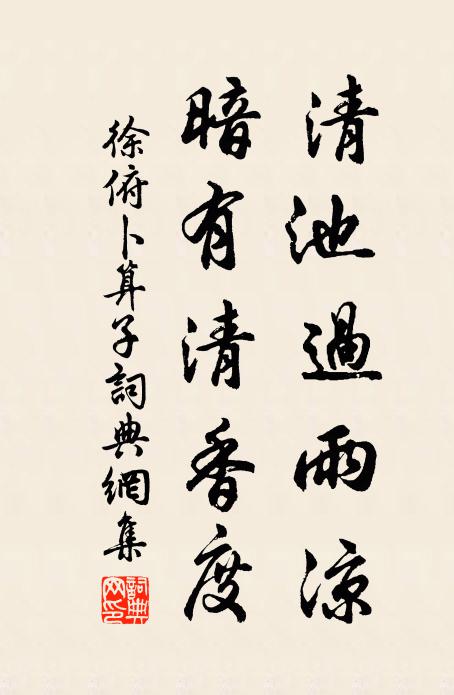 清池過雨涼
暗有清香度
徐俯卜算子詞典網集
詞典
网印